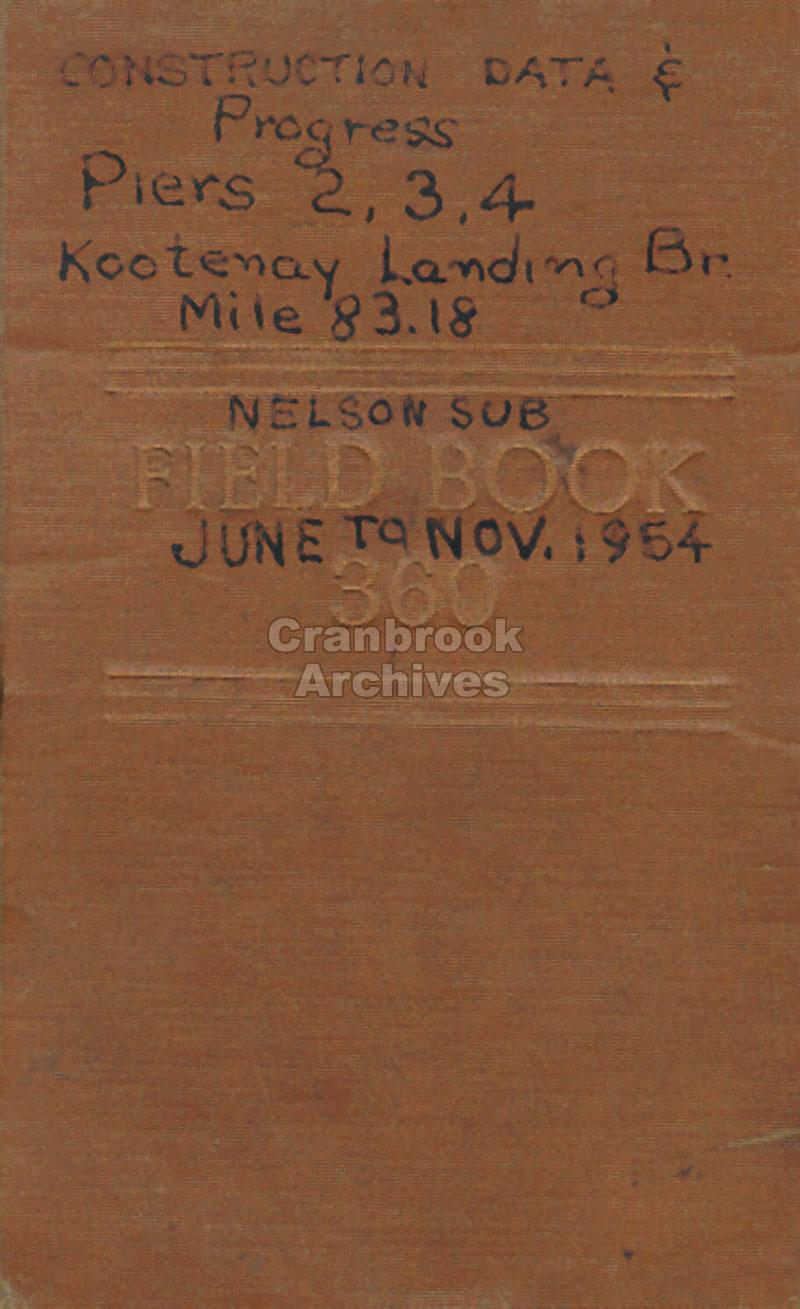 CONSTRUCTION DATA &
Progress
Piers 2, 3, 4
Kootenay Landing Br.
Mile 83.18
NELSON SUB
FIELD BOOK
JUNE TO NOV. 1954
360
Cranbrook
Archives